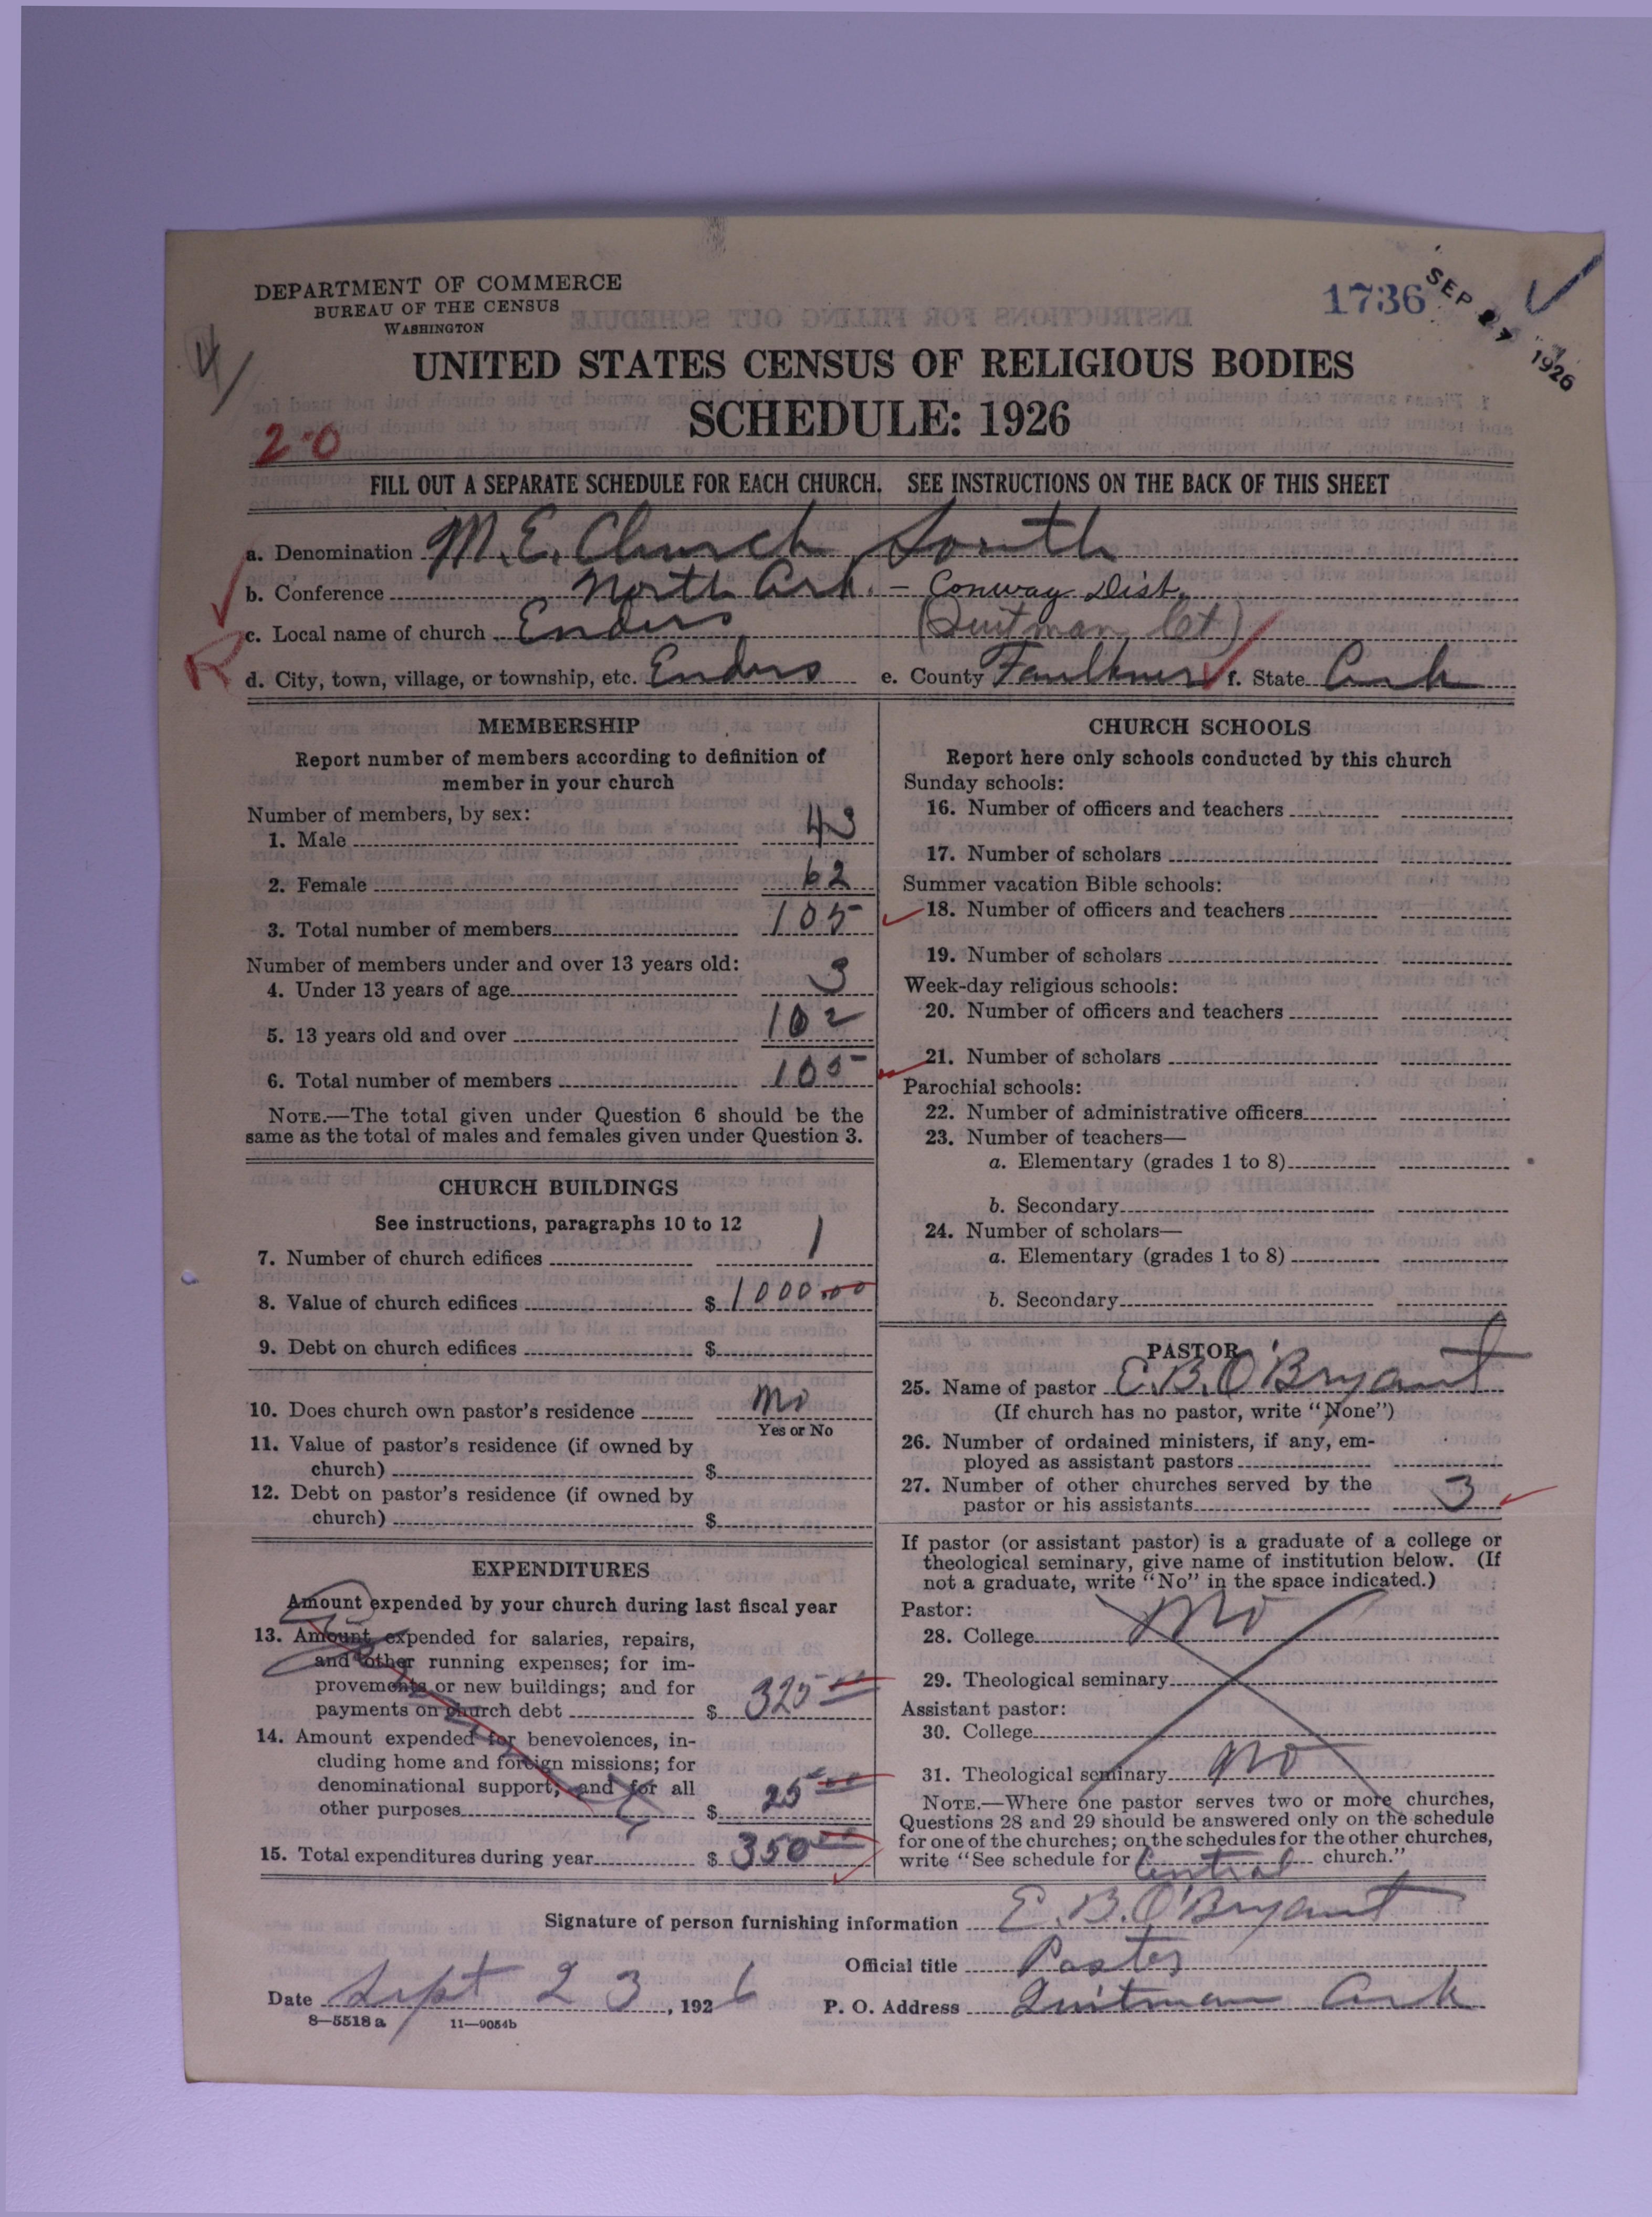 DEPARTMENT OF COMMERCE
BUREAU OF THE CENSUS
WASHINGTON
1736
SEP 27 1926
UNITED STATES CENSUS OF RELIGIOUS BODIES
SCHEDULE: 1926
2-0
FILL OUT A SEPARATE SCHEDULE FOR EACH CHURCH. SEE INSTRUCTIONS ON THE BACK OF THIS SHEET
a. Denomination M.E. Church South
b. Conference North Ark. - Conway Dist.
c. Local name of church Enders (Quitman Ct)
R
d. City, town, village, or township, etc. Enders e. County Faulkner f. State Ark
MEMBERSHIP
Report number of members according to definition of
member in your church
Number of members, by sex:
1. Male 43
2. Female 62
3. Total number of members 105
Number of members under and over 13 years old:
4. Under 13 years of age 3
5. 13 years old and over 102
6. Total number of members 105
NOTE.—The total given under Question 6 should be the
same as the total of males and females given under Question 3.
CHURCH BUILDINGS
See instructions, paragraphs 10 to 12
7. Number of church edifices 1
8. Value of church edifices $ 1000.00
9. Debt on church edifices $
10. Does church own pastor's residence No
Yes or No
11. Value of pastor's residence (if owned by
church) $
12. Debt on pastor's residence (if owned by
church) $
EXPENDITURES
Amount expended by your church during last fiscal year
13. Amount expended for salaries, repairs,
and other running expenses; for im-
provements or new buildings; and for
payments on church debt $ 325 00
14. Amount expended for benevolences, in-
cluding home and foreign missions; for
denominational support; and for all
other purposes $ 25 00
15. Total expenditures during year $ 350 00
CHURCH SCHOOLS
Report here only schools conducted by this church
Sunday schools:
16. Number of officers and teachers
17. Number of scholars
Summer vacation Bible schools:
18. Number of officers and teachers
19. Number of scholars
Week-day religious schools:
20. Number of officers and teachers
21. Number of scholars
Parochial schools:
22. Number of administrative officers
23. Number of teachers—
a. Elementary (grades 1 to 8)
b. Secondary
24. Number of scholars—
a. Elementary (grades 1 to 8)
b. Secondary
PASTOR
25. Name of pastor E.B. O'Bryant
(If church has no pastor, write "None")
26. Number of ordained ministers, if any, em-
ployed as assistant pastors
27. Number of other churches served by the
pastor or his assistants 3
If pastor (or assistant pastor) is a graduate of a college or
theological seminary, give name of institution below. (If
not a graduate, write "No" in the space indicated.)
Pastor:
28. College No
29. Theological seminary
Assistant pastor:
30. College
31. Theological seminary No
NOTE.—Where one pastor serves two or more churches,
Questions 28 and 29 should be answered only on the schedule
for one of the churches; on the schedules for the other churches,
write "See schedule for Central church."
Signature of person furnishing information E. B. O'Bryant
Official title Pastor
Date Sept 23, 1926 P. O. Address Quitman Ark
8—5518 a 11—9054b